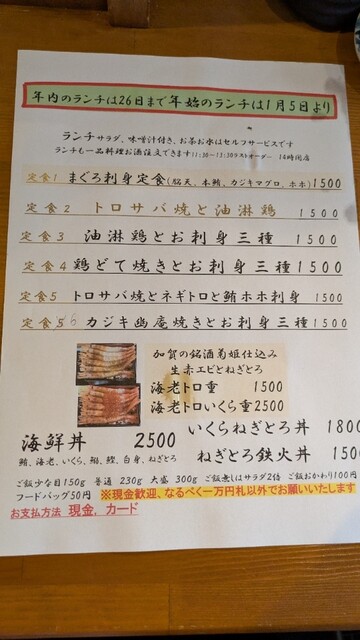 年内のランチは26日まで年始のランチは1月5日より
ランチサラダ、味噌汁付き、お茶お水はセルフサービスです
ランチも一品料理お酒注文できます11:30~13:30ラストオーダー 14時閉店
定食1 まぐろ刺身定食(脳天、本鮪、カジキマグロ、ホホ)1500
定食2 トロサバ焼と油淋鶏 1500
定食3 油淋鶏とお刺身三種 1500
定食4 鶏どて焼きとお刺身三種1500
定食5 トロサバ焼とネギトロと鮪ホホ刺身 1500
定食56 カジキ幽庵焼きとお刺身三種 1500
加賀の銘酒菊姫仕込み
生赤エビとねぎとろ
海老トロ重 1500
海老トロいくら重2500
海鮮丼 2500
鮪、海老、いくら、鰤、鰹、白身、ねぎとろ
いくらねぎとろ丼 1800
ねぎとろ鉄火丼 150
ご飯少な目150g 普通 230g 大盛 300g ご飯無しはサラダ2倍 ご飯おかわり100円
フードバッグ50円 ※現金歓迎、なるべく一万円札以外でお願いいたします
お支払方法 現金、カード